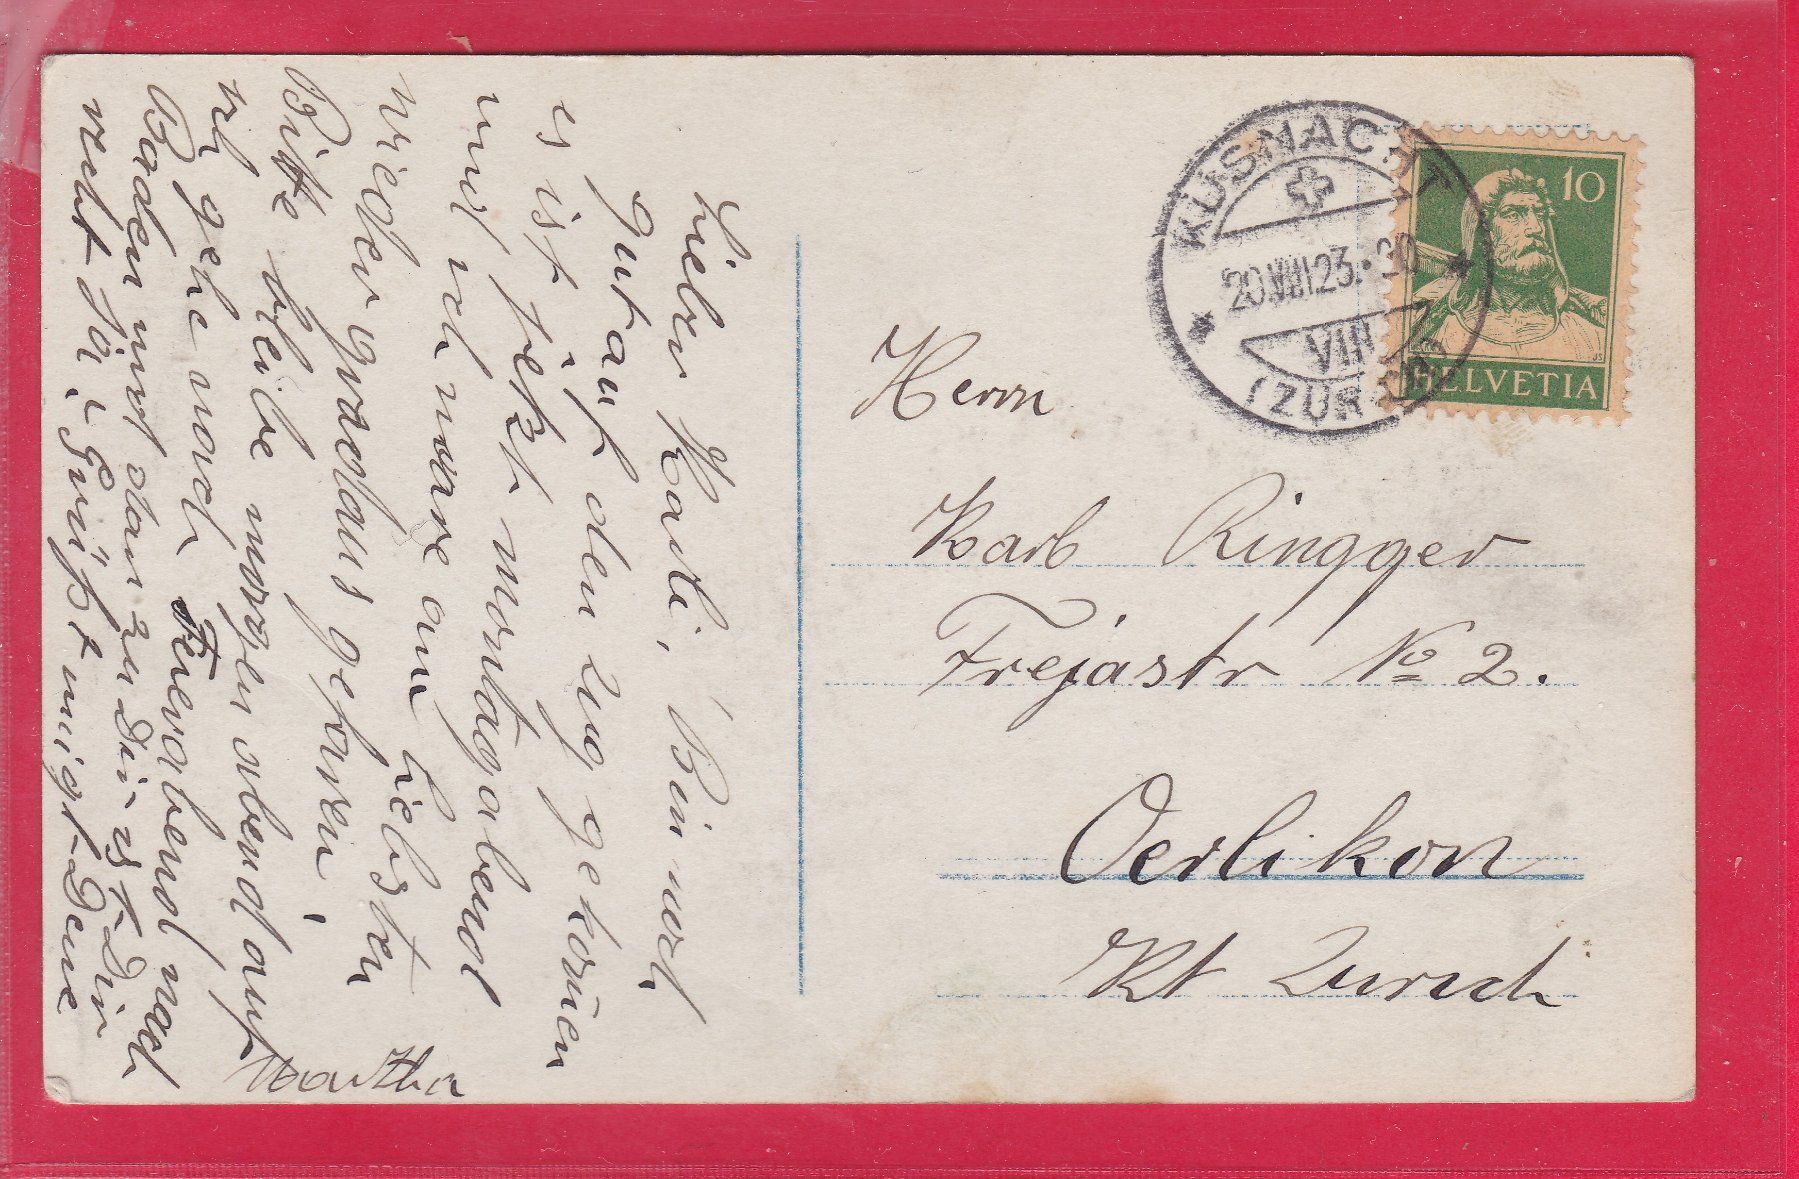 Lieber Karli, Bin noch
gut auf den Zug gekomen
es ist jetzt montagabend
und ich ware am Liebsten
wieder gradaus gefaren,
Bitte bleibe morgen abend auf
ich gehe nach Feierabend nach
Baden und dan zu Dir ist Dir
recht Ja, Grüßt migst Deine
Martha
KÜSNACHT
20.VIII.23
VIII
(ZÜRICH)
10
HELVETIA
Herrn
Karl Ringger
Frejastr No 2.
Oerlikon
Kt Zurich